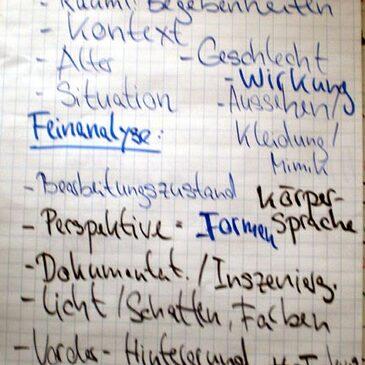 - Räuml. Begebenheiten
- Kontext
- Alter - Geschlecht
- Wirkung
- Situation - Aussehen/
Feinanalyse: Kleidung/
Mimik
- Bearbeitungszustand Körper-
- Perspektive - Formen Sprache
- Dokumentat. / Inszenierg.
- Licht / Schatten, Farben
- Vorder- Hintergrund